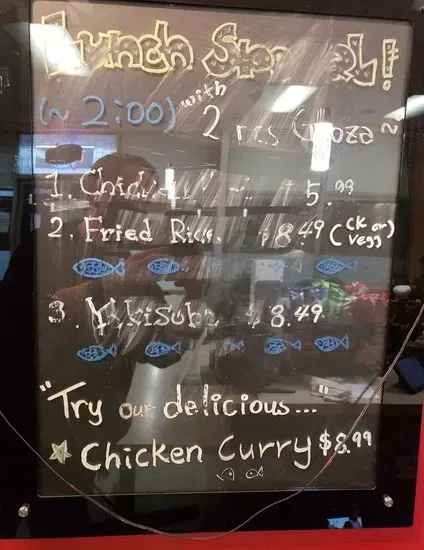 Lunch Special!
(~ 2:00) with 2 pcs Gyoza ~
1. Chicken 5.99
2. Fried Rice $8.49 (CK or Vegg)
3. Yakisoba $8.49
"Try our delicious..."
Chicken Curry $8.99